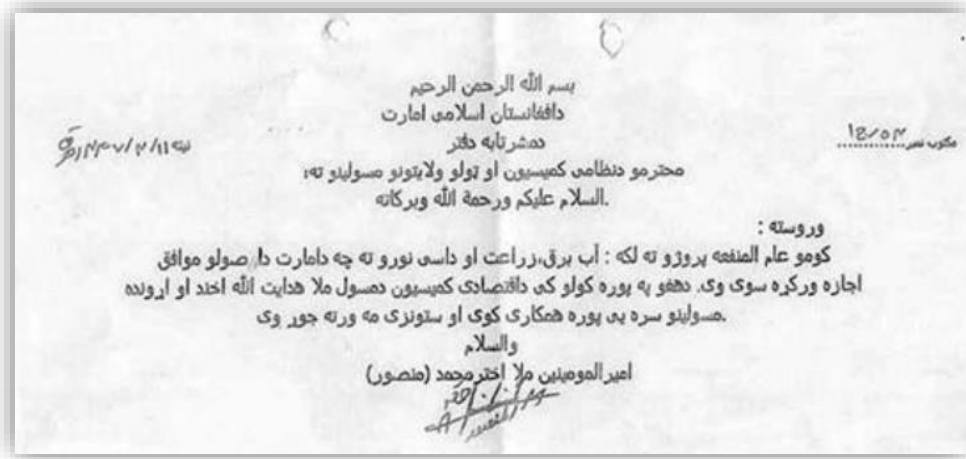 بسم الله الرحمن الرحیم
دافغانستان اسلامی امارت
دمشرتابه دفتر
مکتوب نمبر
محترمو دنظامی کمیسیون او ټولو ولایتونو مسولینو ته:
السلام علیکم ورحمة الله وبرکاته.
وروسته :
کومو عام المنفعه پروژو ته لکه : آب برق،زراعت او داسی نورو ته چه دامارت دا صولو موافق
اجازه ورکړه سوی وی. دهغو په پوره کولو کی داقتصادی کمیسیون دمسول ملا هدایت الله اخند او اړونده
مسولینو سره یی پوره همکاری کوی او ستونزی مه ورته جوړ وی.
والسلام
امیرالمومینین ملا اخترمحمد (منصور)